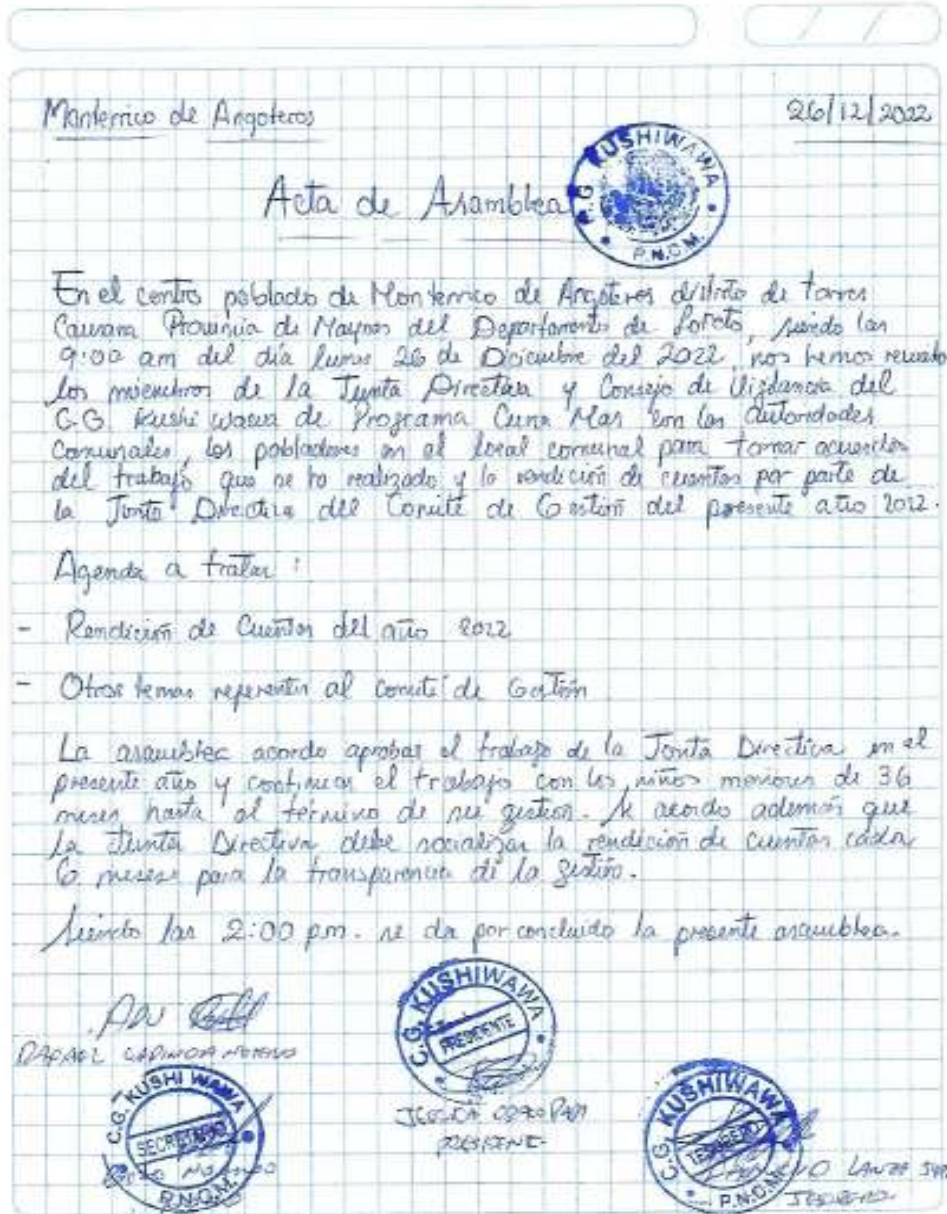 Monterrico de Angoteros
26/12/2022
Acta de Asamblea
C.G. KUSHIWAWA
P.N.C.M.
En el centro poblado de Monterrico de Angoteros distrito de torres
Causana Provincia de Maynas del Departamento de Loreto, siendo las
9:00 am del día lunes 26 de Diciembre del 2022, nos hemos reunido
los miembros de la Junta Directiva y Consejo de Vigilancia del
C.G. Kushi wawa de Programa Cuna Mas con las autoridades
Comunales, los pobladores en el local comunal para tomar acuerdos
del trabajo que se ha realizado y la rendición de cuentas por parte de
la Junta Directiva del Comité de Gestión del presente año 2022.
Agenda a tratar :
- Rendición de Cuentas del año 2022
- Otros temas referentes al comité de Gestión
La asamblea acordo aprobar el trabajo de la Junta Directiva en el
presente año y continuar el trabajo con los niños menores de 36
meses hasta el término de su gestion. Se acordo además que
La Junta Directiva debe socializar la rendición de cuentas cada
6 meses para la transparencia de la gestión.
Siendo las 2:00 pm. se da por concluido la presente asamblea.
RAFAEL
C.G. KUSHIWAWA
PRESIDENTE
PRESIDENTE
C.G. KUSHI WAWA
SECRETARIO
P.N.C.M.
C.G. KUSHIWAWA
TESORERO
P.N.C.M.
LANZA
TESORERO